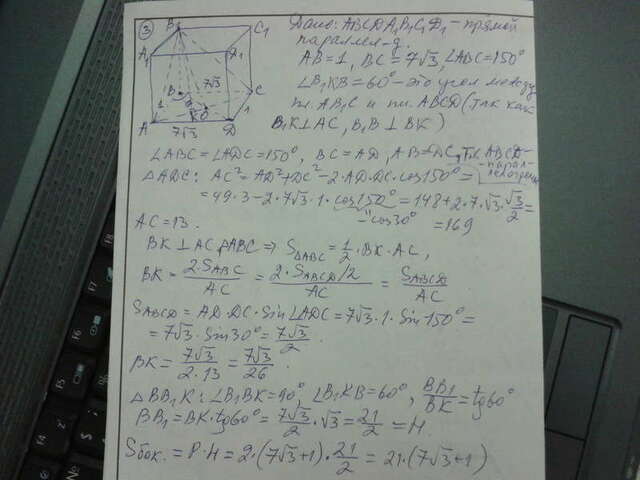 ③
B₁ C₁ A₁ D₁ 7√3 B C 1 2 K O 1 A 7√3 D
Дано: ABCDA₁B₁C₁D₁ - прямой
параллел-д.
AB=1, BC=7√3, ∠ABC=150°
∠B₁KB=60° - это угол между
пл. AB₁C и пл. ABCD (так как
B₁K⊥AC, B₁B⊥BK)
∠ABC=∠ADC=150°, BC=AD, AB=DC, т.к. ABCD-
- парал-
лелограмм
△ADC: AC²=AD²+DC²-2·AD·DC·cos150°=
=49·3-2·7√3·1·cos150°=148+2·7·√3·√3/2=
"-cos30° =169
AC=13.
BK⊥AC, △ABC ⇒ S△ABC=1/2·BK·AC,
BK=2·SABC/AC=2·SABCD/2/AC=SABCD/AC
SABCD=AD·DC·Sin∠ADC=7√3·1·Sin150°=
=7√3·Sin30°=7√3/2.
BK=7√3/2·13=7√3/26.
△BB₁K: ∠B₁BK=90°, ∠B₁KB=60°, BB₁/BK=tg60°
BB₁=BK·tg60°=7√3/2·√3=21/2=H.
Sбок.=P·H=2·(7√3+1)·21/2=21·(7√3+1)
F5
F6
F7
F8